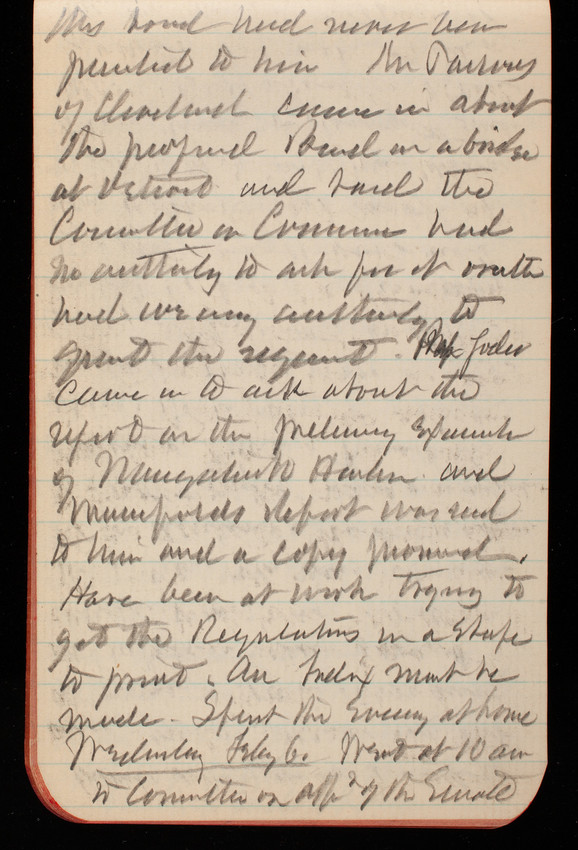 this bond had never been
presented to him Mr Parsons
of Cleveland came in about
the proposed Board on a bridge
at Detroit and said the
Committee on Commerce had
no authority to ask for it neither
had we any authority to
grant the request. Rep
came in to ask about the
report on the preliminary Exam
of Harbor and
report was read
to him and a copy promised.
Have been at work trying to
get the Regulations in a shape
to print. An Index must be
made. Spent the Evening at home
Wednesday Feby 6. Went at 10 am
to Committee on app^ns of the Senate